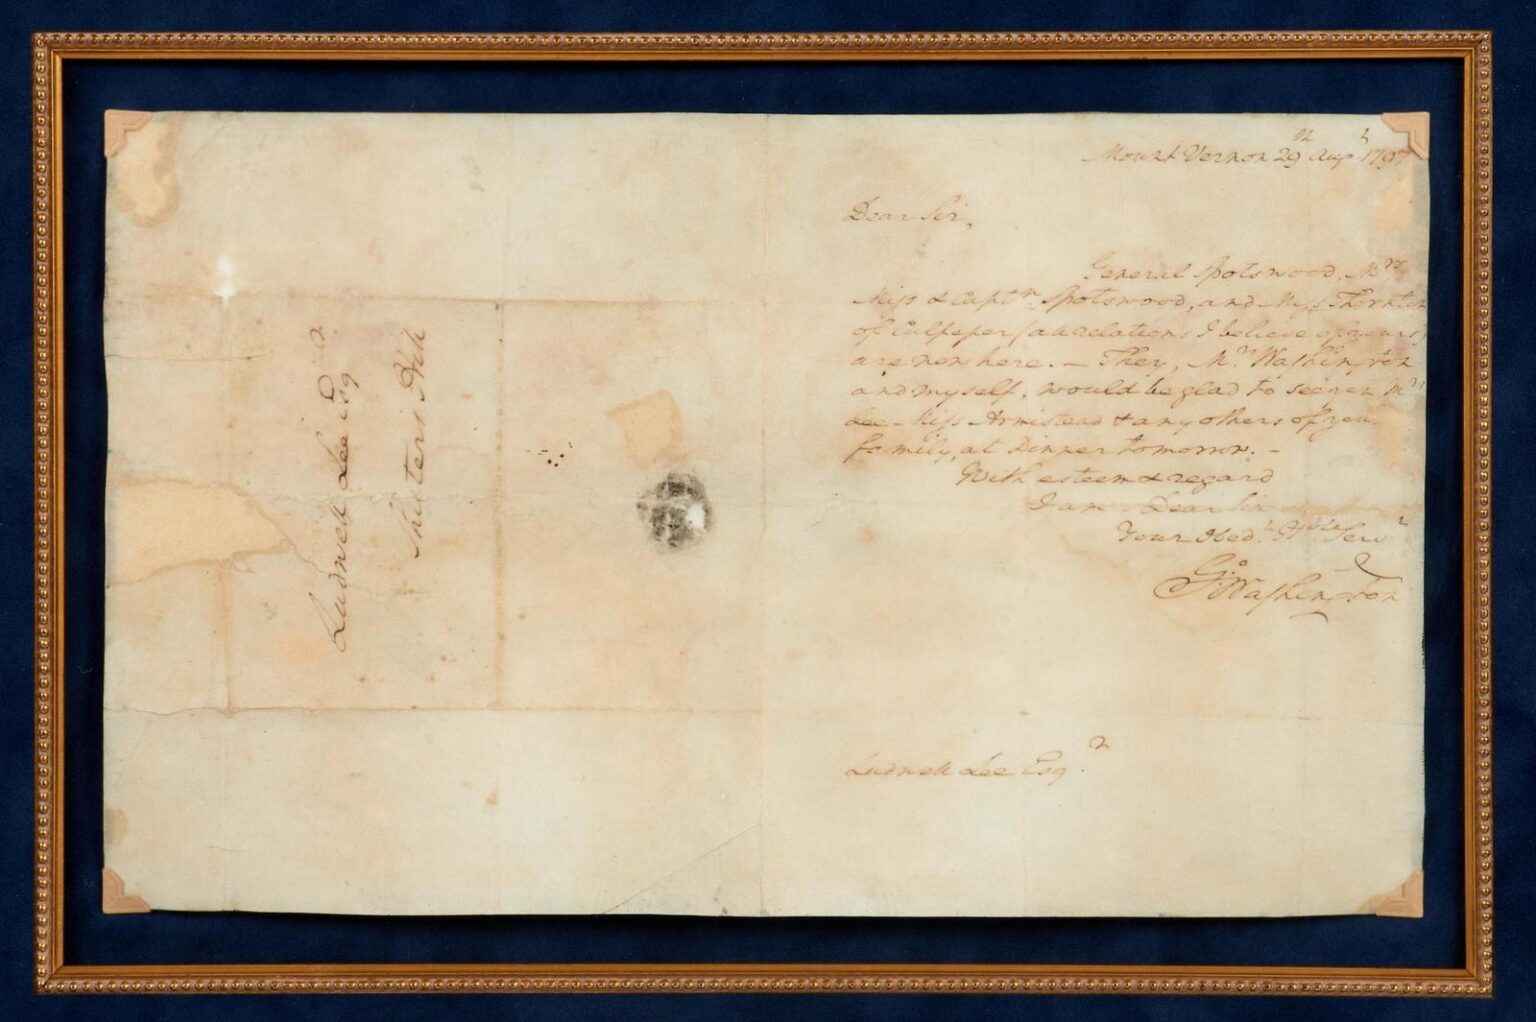 Ludwell Lee Esqr
Shuters Hill
Mount Vernon 29th Augt 1797
Dear Sir,
General Spotswood, Mrs
Miss & Captn Spotswood, and Miss Thornton
of Culpeper (all relations I believe of yours)
are now here. — They, Mrs Washington
and myself, would be glad to see you Mrs
Lee Miss Armistead & any others of your
family, at Dinner tomorrow. —
With esteem & regard
I am — Dear Sir
Your Obedt Hble Servt
Go: Washington
Ludwell Lee Esqr